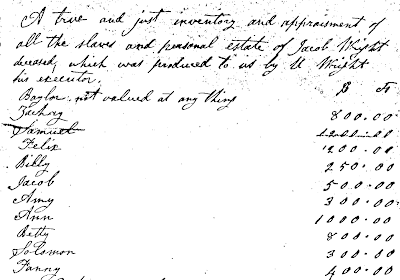 A true and just inventory and appraisment of
all the slaves and personal estate of Jacob Wright
deceased, which was produced to us by W Wright
his executor. $ cts
Baylor. not valued at any thing
Zachry 800.00
Samuel 1200.00
Felix 1200.00
Billy 250.00
Jacob 500.00
Amy 300.00
Ann 1000.00
Betty 800.00
Solomon 300.00
Fanny 400.00